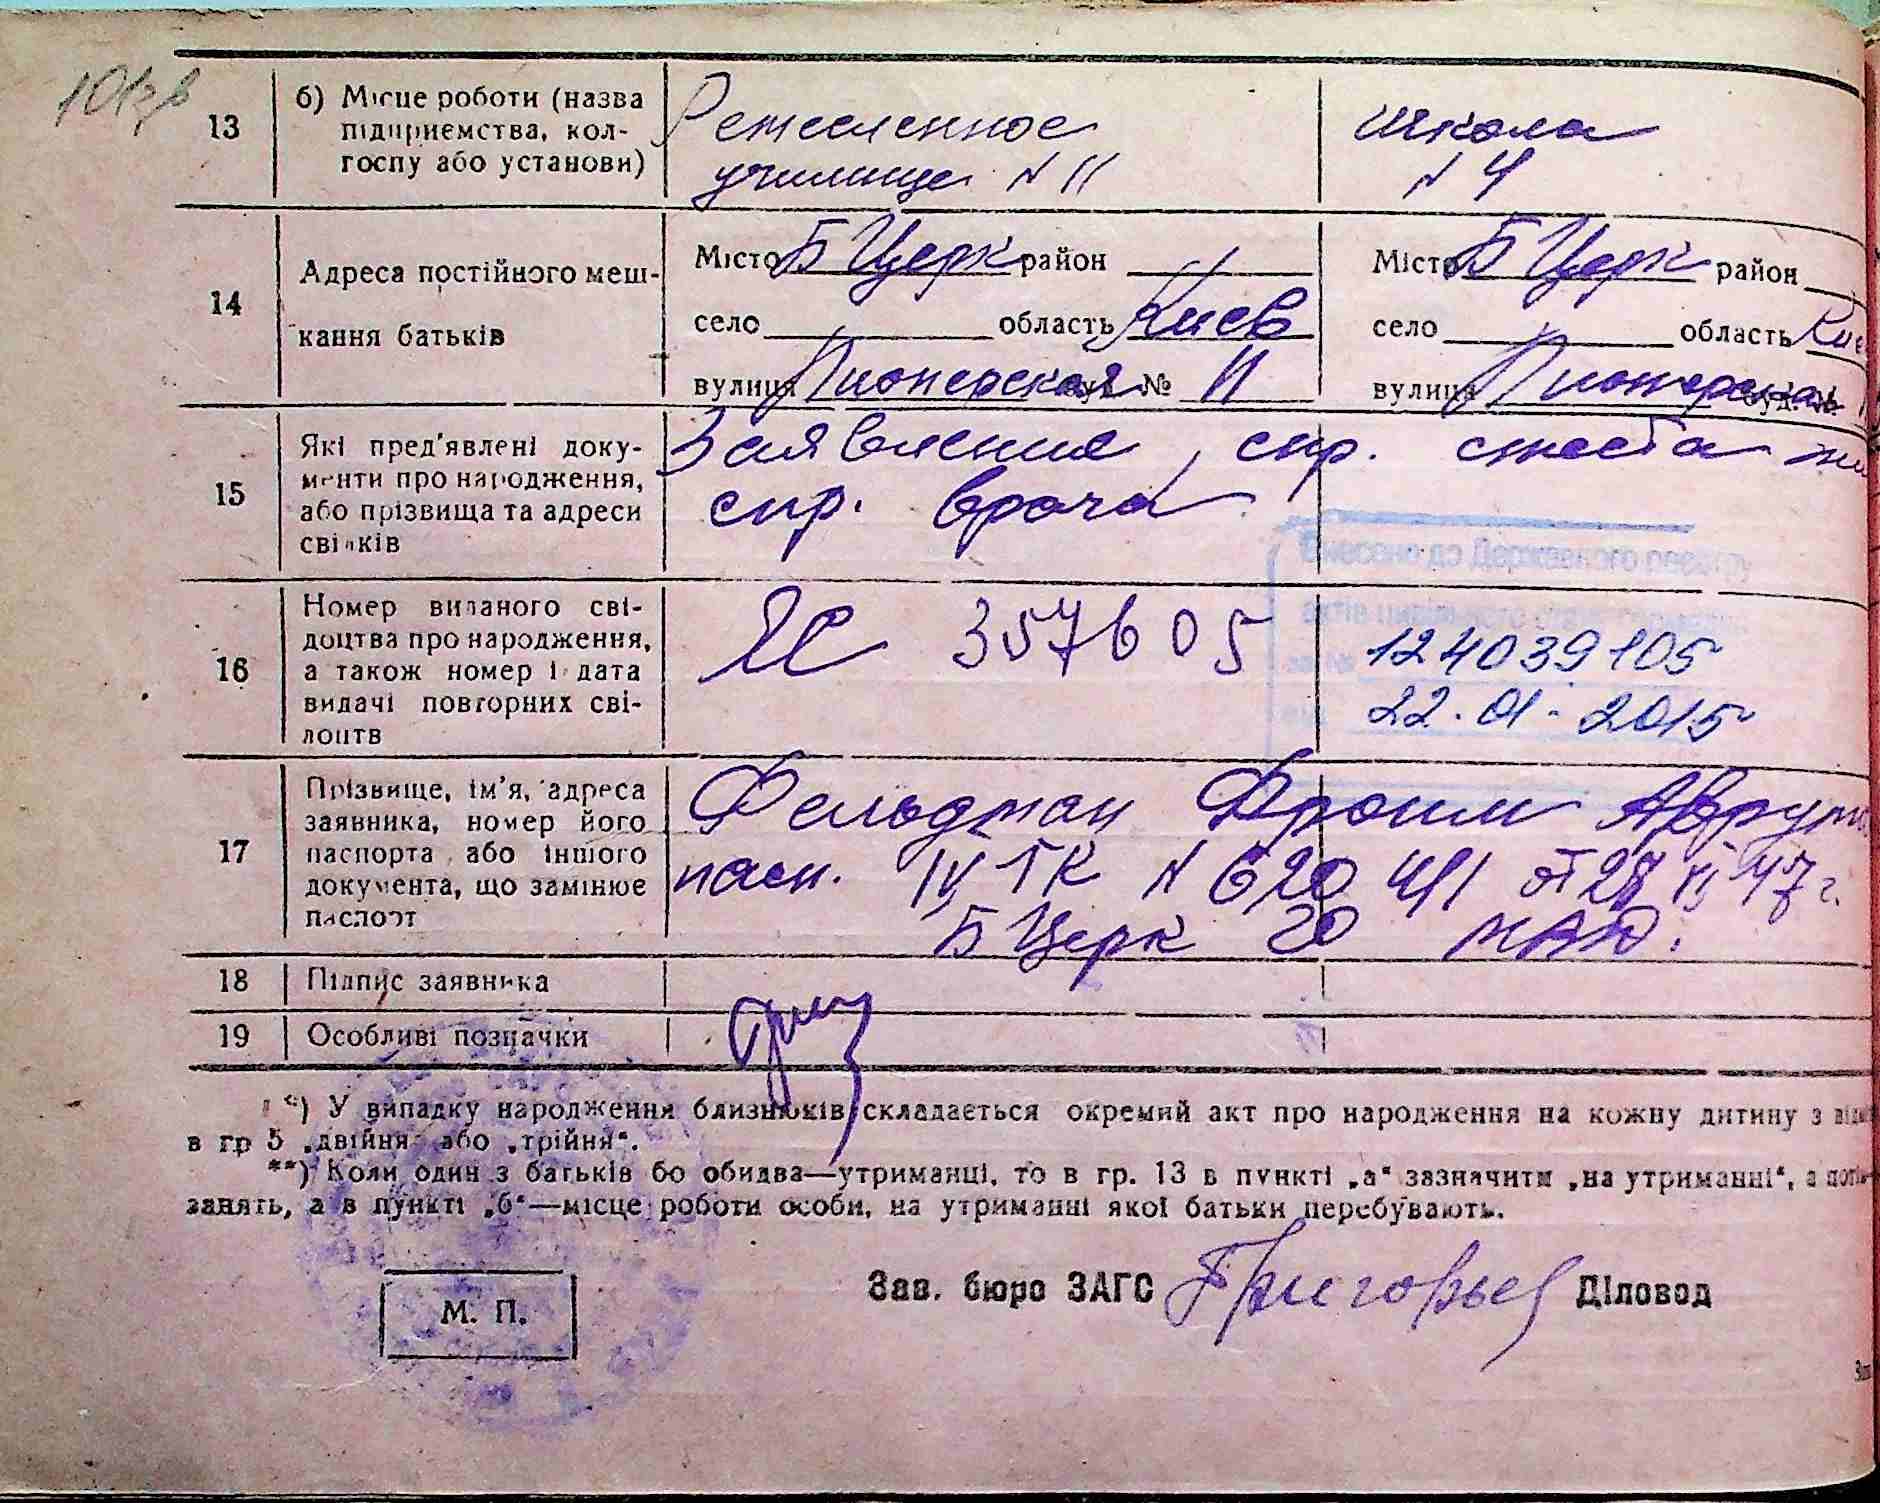 13
б) Місце роботи (назва
підприємства, кол-
госпу або установи)
Ремесленное
училище N 11
школа
N 4
14
Адреса постійного меш-
кання батьків
Місто Б Церк район
село область Киев
вулиця Пионерская буд. № 11
Місто Б Церк район
село область Киев
вулиця Пионерская буд. №
15
Які пред'явлені доку-
менти про народження,
або прізвища та адреси
свідків
Заявление, спр. с места
спр. врача
Внесено до Державного реєстру
актів цивільного стану громадян
16
Номер виданого сві-
доцтва про народження,
а також номер і дата
видачі повторних сві-
доцтв
357605
124039105
22.01.2015
17
Прізвище, ім'я, адреса
заявника, номер його
паспорта або іншого
документа, що замінює
паспорт
Фельдман Фроим
пасп. IV ТК N 620 491 от 28 47 г.
Б Церк
18
Підпис заявника
19
Особливі позначки
*) У випадку народження близнюків складається окремий акт про народження на кожну дитину з
в гр 5 „двійня“ або „трійня“.
**) Коли один з батьків бо обидва—утриманці, то в гр. 13 в пункті „а“ зазначити „на утриманні“, а
занять, а в пункті „б“—місце роботи особи, на утриманні якої батьки перебувають.
Зав. бюро ЗАГС Григорьев Діловод
М. П.